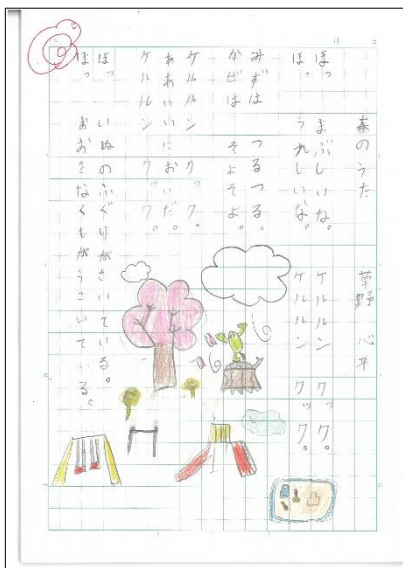 春のうた　草野　心平
ほっ　まぶしいな。
ほっ　うれしいな。
みずは　つるつる。
かぜは　そよそよ。
ケルルン　クック。
ああいいにおいだ。
ケルルン　クック。
ほっ　いぬのふぐりがさいている。
ほっ　おおきなくもがうごいている。
ケルルン　クック。
ケルルン　クック。